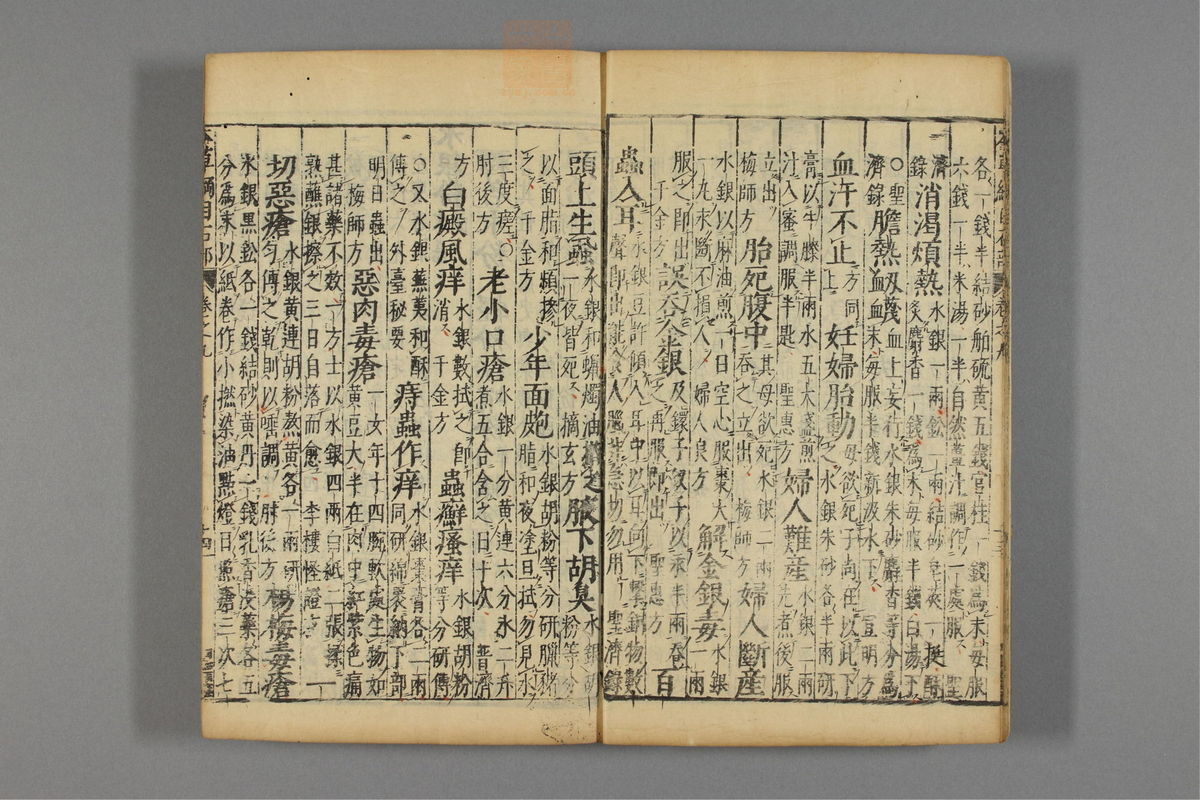 各一錢半結砂舶硫黃五錢官桂一錢爲末每服
六錢一半米湯一半自然薑汁調作一處服聖
濟錄消渴煩熱水銀一兩鉛一兩結砂皂莢一挺酥
炙麝香一錢爲末每服半錢白湯下
〇聖濟錄膽熱衄衊血上妄行水銀朱砂麝香等分爲
末每服半錢新汲水下宣明方
血汗不止方同上妊婦胎動母欲死子尚在以此下
之水銀朱砂各半兩研
膏以牛膝半兩水五大盞煎
汁入蜜調服半匙聖惠方婦人難產水銀二兩
先煮後服
立出
梅師方胎死腹中其母欲死水銀二兩
吞之立出梅師方婦人斷產
水銀以麻油煎一日空心服棗大
一丸永斷不損人婦人良方解金銀毒水銀
一兩
服之即出
千金方誤吞金銀及鐶子釵子以汞半兩吞
之再服即出聖惠方百
蟲入耳水銀豆許傾入耳中以耳向下擊銅物數
聲即出能食人腦非急切勿用聖濟錄
頭上生蝨水銀和蠟燭油揩之
一夜皆死摘玄方腋下胡臭水銀胡
粉等分
以面脂和頻摻
之千金方少年面皰水銀胡粉等分研臘豬
脂和夜塗旦拭勿見水
三度瘥〇
肘後方老小口瘡水銀一分黃連六分水一升
煮五合含之日十次普濟
方白癜風痒水銀數拭之即
消千金方蟲癬瘙痒水銀胡粉
等分研傅
〇又水銀蕪荑和酥
傅之外臺秘要痔蟲作痒水銀棗膏各二兩
同研綿裹納下部
明日蟲出
梅師方惡肉毒瘡一女年十四腕軟處生物如
黃豆大半在肉中紅紫色痛
甚諸藥不效一方士以水銀四兩白紙二張揉
熟蘸銀擦之三日自落而愈李樓怪證方一
切惡瘡水銀黃連胡粉熬黃各一兩研
勻傅之乾則以唾調肘後方楊梅毒瘡
水銀黑鉛各一錢結砂黃丹一錢乳香沒藥各五
分爲末以紙卷作小撚染油點燈日照瘡三次七